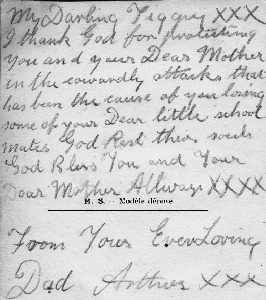 My Darling Piggy XXX
I thank God for protecting
You and your Dear Mother
in the cowardly attacks that
has been the cause of your losing
some of your Dear little school
mates God Rest their souls
God Bless You and Your
Dear Mother Allways XXXX
M. S. — Modèle dépose
From Your Ever Loving
Dad Arthur XXX